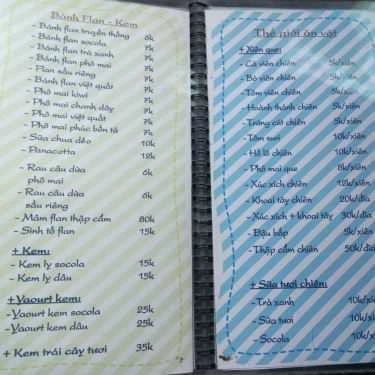 Bánh Flan - Kem
- Bánh flan truyền thống 6k
- Bánh flan socola 7k
- Bánh flan trà xanh 7k
- Bánh flan phô mai 7k
- Flan sầu riêng 7k
- Bánh flan việt quất 7k
- Phô mai kiwi 7k
- Phô mai chanh dây 7k
- Phô mai việt quất 7k
- Phô mai phúc bồn tử 7k
- Sữa chua dẻo 10k
- Panacotta 12k
- Rau câu dừa
phô mai 6k
- Rau câu dừa
sầu riêng 6k
- Mâm flan thập cẩm 80k
- Sinh tố flan 15k
+ Kem:
- Kem ly socola 15k
- Kem ly dâu 15k
+ Yaourt kem:
- Yaourt kem socola 25k
- Yaourt kem dâu 25k
+ Kem trái cây tươi 35k
Thế giới ăn vặt
+ Xiên que:
- Cá viên chiên 5k/xiên
- Bò viên chiên 5k/xiên
- Tôm viên chiên 5k/xiên
- Hoành thánh chiên 5k/xiên
- Trứng cút chiên 5k/xiên
- Tôm sú 10k/xiên
- Hồ lô chiên 10k/xiên
- Phô mai que 8k/xiên
- Xúc xích chiên 12k/xiên
- Khoai tây chiên 20k/dĩa
- Xúc xích + khoai tây 30k/dĩa
- Đậu bắp 5k/xiên
- Thập cẩm chiên 50k/dĩa
+ Sữa tươi chiên:
- Trà xanh 10k/xiên
- Sữa tươi 10k/xiên
- Socola 10k/xiên